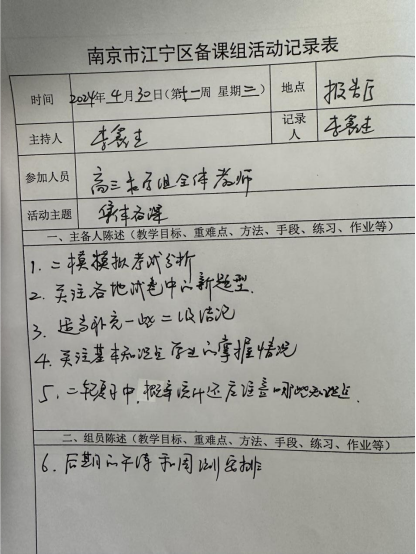 南京市江宁区备课组活动记录表
时间 2024年4月30日（第十一周 星期二） 地点 报告厅
主持人 李鑫生 记录人 李鑫生
参加人员 高三数学组全体教师
活动主题 集体备课
一、主备人陈述（教学目标、重难点、方法、手段、练习、作业等）
1. 二模模拟考试分析
2. 关注各地试卷中的新题型.
3. 适当补充一些二级结论
4. 关注基本知识点学生的掌握情况
5. 二轮复习中，概率统计还应注意哪些知识点.
二、组员陈述（教学目标、重难点、方法、手段、练习、作业等）
6. 后期的午练和周测安排